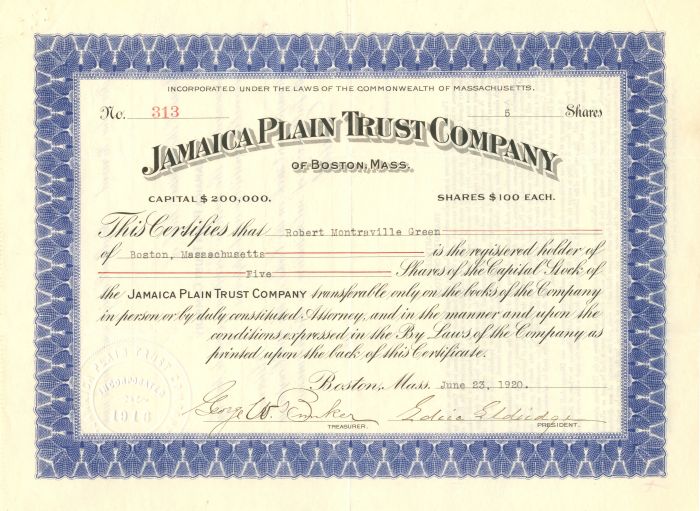 INCORPORATED UNDER THE LAWS OF THE COMMONWEALTH OF MASSACHUSETTS.
No. 313 5 Shares
JAMAICA PLAIN TRUST COMPANY
OF BOSTON, MASS.
CAPITAL $200,000. SHARES $100 EACH.
This Certifies that Robert Montraville Green
of Boston, Massachusetts is the registered holder of
Five Shares of the Capital Stock of
the JAMAICA PLAIN TRUST COMPANY transferable only on the books of the Company
in person or by duly constituted Attorney, and in the manner and upon the
conditions expressed in the By Laws of the Company as
printed upon the back of this Certificate.
Boston, Mass. June 23, 1920.
George W.
TREASURER. PRESIDENT.
INCORPORATED
1918